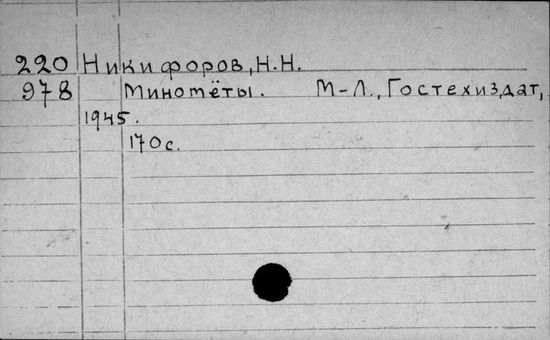 220 Никифоров, Н.Н.
978 Миномёты. М-Л., Гостехиздат,
1945.
170с.